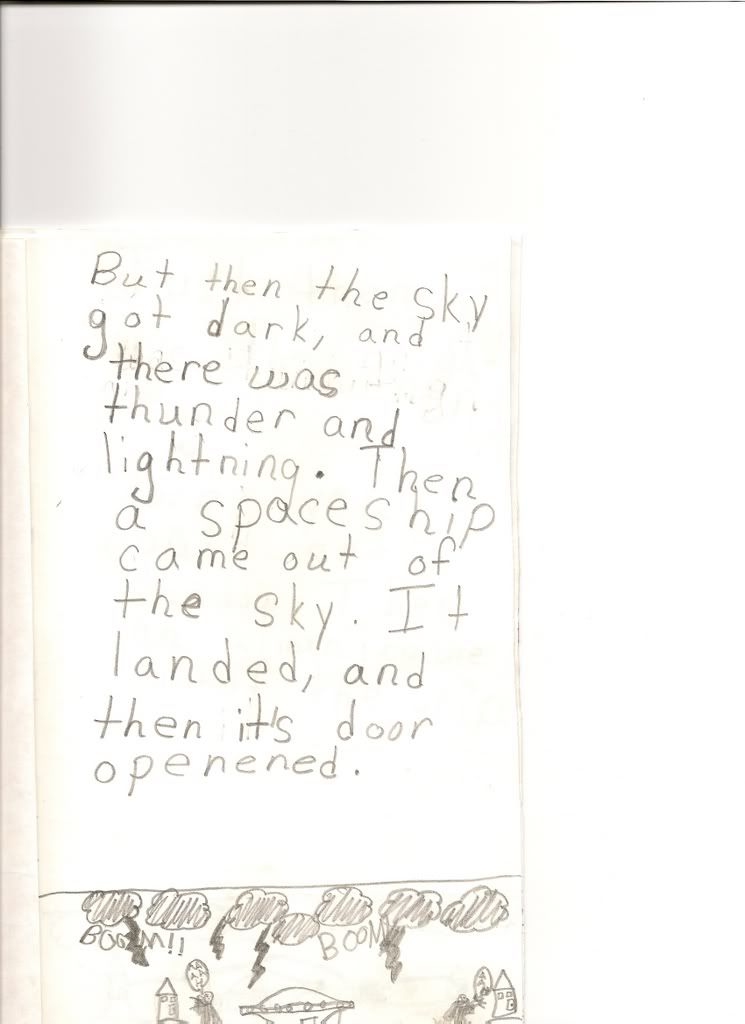 But then the sky
got dark, and
there was
thunder and
lightning. Then
a spaceship
came out of
the sky. It
landed, and
then it's door
openened.
BOOM!! BOOM